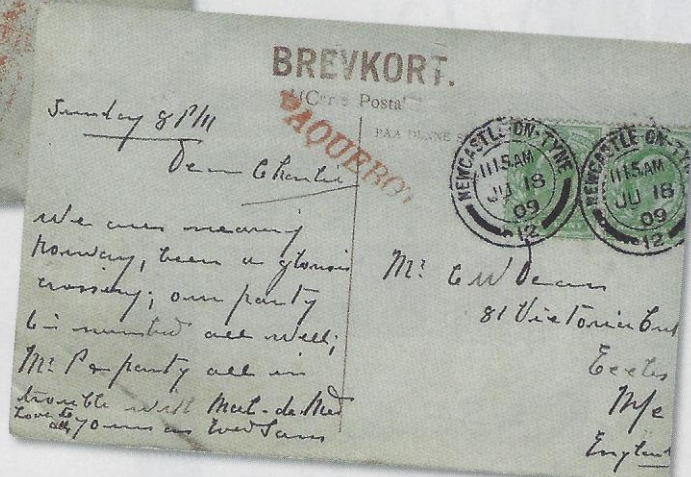 BREVKORT.
(Carte Postale)
PAQUEBOT
PAA DENNE S
NEWCASTLE-ON-TYNE
11 15 AM
JU 18
09
12
NEWCASTLE-ON-TY
11 15 AM
JU 18
09
12
Sunday 8 P/11
Dear Charlie
We are nearing
Norway, been a glorious
crossing; our party
all well;
Mr party all in
trouble with Mal-de-Mer
Love to all Yours as
Mr C W Dean
81 Victoria
Eccles
M/c
England